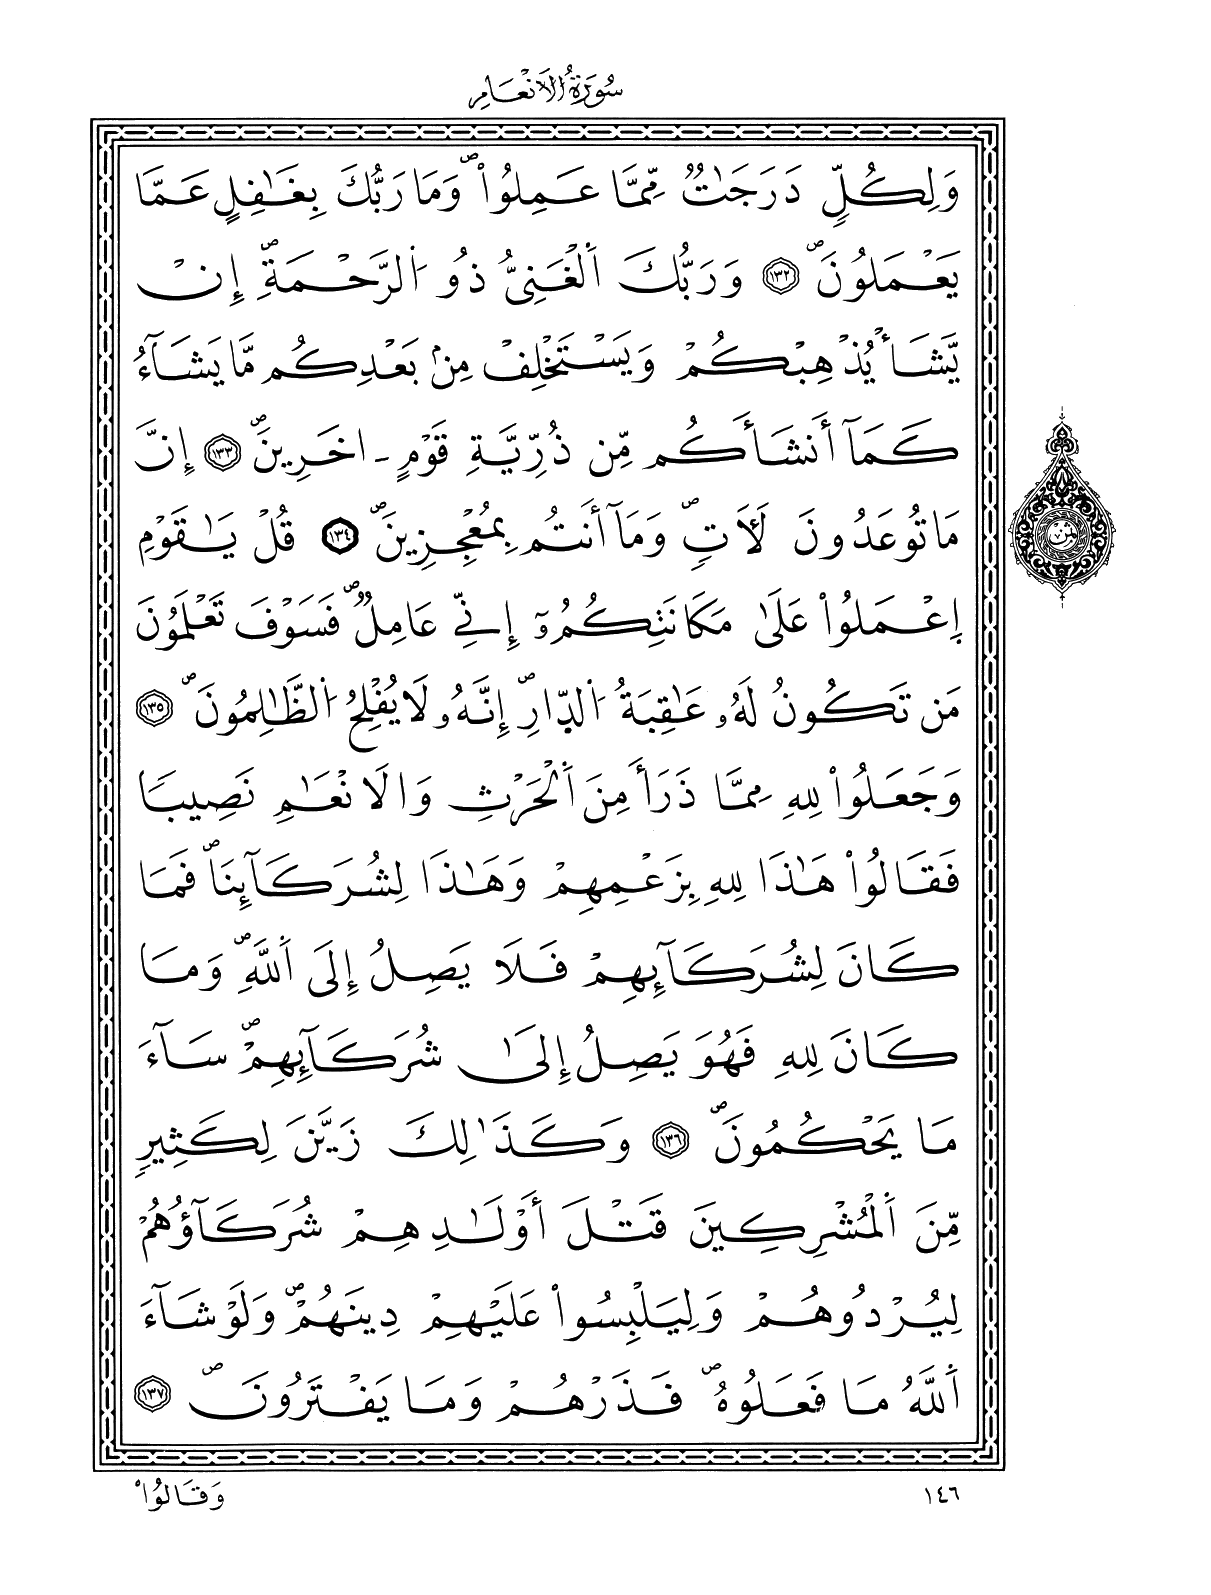 سُورَةُ الْأَنْعَامِ
وَلِكُلٍّ دَرَجَٰتٌ مِّمَّا عَمِلُواْۖ وَمَا رَبُّكَ بِغَٰفِلٍ عَمَّا
يَعْمَلُونَۖ ١٣٢ وَرَبُّكَ اَ۬لْغَنِيُّ ذُو اُ۬لرَّحْمَةِۖ إِنْ
يَّشَأْ يُذْهِبْكُمْ وَيَسْتَخْلِفْ مِنۢ بَعْدِكُم مَّا يَشَآءُ
كَمَآ أَنشَأَكُم مِّن ذُرِّيَّةِ قَوْمٍ ـ اخَرِينَۖ ١٣٣ إِنَّ
مَا تُوعَدُونَ لَأٓتٖۖ وَمَآ أَنتُم بِمُعْجِزِينَۖ ١٣٤ قُلْ يَٰقَوْمِ
اِ۪عْمَلُواْ عَلَىٰ مَكَانَتِكُمُۥٓ إِنِّي عَامِلٌۖ فَسَوْفَ تَعْلَمُونَ
مَن تَكُونُ لَهُۥ عَٰقِبَةُ اُ۬لدّ۪ارِۖ إِنَّهُۥ لَا يُفْلِحُ اُ۬لظَّٰلِمُونَۖ ١٣٥
وَجَعَلُواْ لِلهِ مِمَّا ذَرَأَ مِنَ اَ۬لْحَرْثِ وَالَانْعَٰمِ نَصِيباٗ
فَقَالُواْ هَٰذَا لِلهِ بِزَعْمِهِمْ وَهَٰذَا لِشُرَكَآئِنَاۖ فَمَا
كَانَ لِشُرَكَآئِهِمْ فَلَا يَصِلُ إِلَى اَ۬للَّهِۖ وَمَا
كَانَ لِلهِ فَهُوَ يَصِلُ إِلَىٰ شُرَكَآئِهِمْۖ سَآءَ
مَا يَحْكُمُونَۖ ١٣٦ وَكَذَٰلِكَ زَيَّنَ لِكَثِيرٍ
مِّنَ اَ۬لْمُشْرِكِينَ قَتْلَ أَوْلَٰدِهِمْ شُرَكَآؤُهُمْ
لِيُرْدُوهُمْ وَلِيَلْبِسُواْ عَلَيْهِمْ دِينَهُمْۖ وَلَوْ شَآءَ
اَ۬للَّهُ مَا فَعَلُوهُۖ فَذَرْهُمْ وَمَا يَفْتَرُونَۖ ١٣٧
وَقَالُواْ
١٤٦